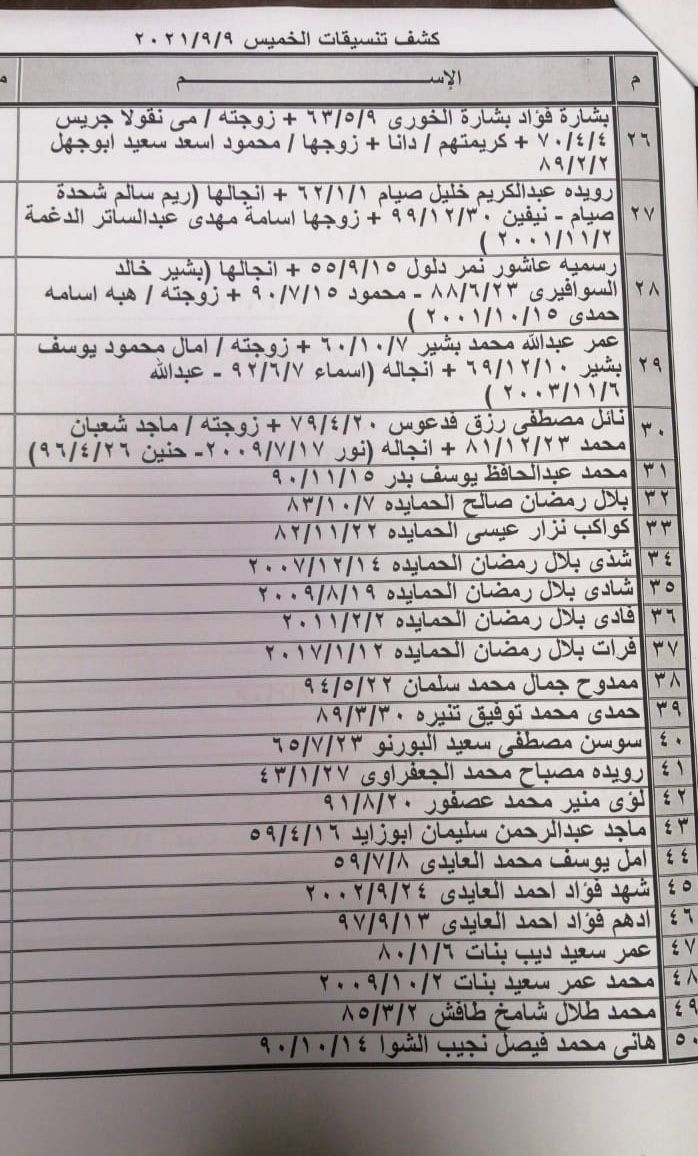 كشف تنسيقات الخميس ٢٠٢١/٩/٩
م الإســـــــــــم م
٢٦ بشارة فؤاد بشارة الخورى ٦٣/٥/٩ + زوجته / مى نقولا جريس
٧٠/٤/٤ + كريمتهم / دانا + زوجها / محمود اسعد سعيد ابوجهل
٨٩/٢/٢
٢٧ رويده عبدالكريم خليل صيام ٦٢/١/١ + انجالها (ريم سالم شحدة
صيام - نيفين ٩٩/١٢/٣٠ + زوجها اسامة مهدى عبدالساتر الدغمة
٢٠٠١/١١/٢ )
٢٨ رسميه عاشور نمر دلول ٥٥/٩/١٥ + انجالها (بشير خالد
السوافيرى ٨٨/٦/٢٣ - محمود ٩٠/٧/١٥ + زوجته / هبه اسامه
حمدى ٢٠٠١/١٠/١٥ )
٢٩ عمر عبدالله محمد بشير ٦٠/١٠/٧ + زوجته / امال محمود يوسف
بشير ٦٩/١٢/١٠ + انجاله (اسماء ٩٢/٦/٧ - عبدالله
٢٠٠٣/١١/٦ )
٣٠ نائل مصطفى رزق قدعوس ٧٩/٤/٢٠ + زوجته / ماجد شعبان
محمد ٨١/١٢/٢٣ + انجاله (نور ٢٠٠٩/٧/١٧- حنين ٩٦/٤/٢٦)
٣١ محمد عبدالحافظ يوسف بدر ٩٠/١١/١٥
٣٢ بلال رمضان صالح الحمايده ٨٣/١٠/٧
٣٣ كواكب نزار عيسى الحمايده ٨٢/١١/٢٢
٣٤ شذى بلال رمضان الحمايده ٢٠٠٧/١٢/١٤
٣٥ شادى بلال رمضان الحمايده ٢٠٠٩/٨/١٩
٣٦ فادى بلال رمضان الحمايده ٢٠١١/٢/٢
٣٧ فرات بلال رمضان الحمايده ٢٠١٧/١/١٢
٣٨ ممدوح جمال محمد سلمان ٩٤/٥/٢٢
٣٩ حمدى محمد توفيق تنيره ٨٩/٣/٣٠
٤٠ سوسن مصطفى سعيد البورنو ٦٥/٧/٢٣
٤١ رويده مصباح محمد الجعفراوى ٤٣/١/٢٧
٤٢ لؤى منير محمد عصفور ٩١/٨/٢٠
٤٣ ماجد عبدالرحمن سليمان ابوزايد ٥٩/٤/١٦
٤٤ امل يوسف محمد العايدى ٥٩/٧/٨
٤٥ شهد فؤاد احمد العايدى ٢٠٠٢/٩/٢٤
٤٦ ادهم فؤاد احمد العايدى ٩٧/٩/١٣
٤٧ عمر سعيد ديب بنات ٨٠/١/٦
٤٨ محمد عمر سعيد بنات ٢٠٠٩/١٠/٢
٤٩ محمد طلال شامخ طافش ٨٥/٣/٢
٥٠ هانى محمد فيصل نجيب الشوا ٩٠/١٠/١٤